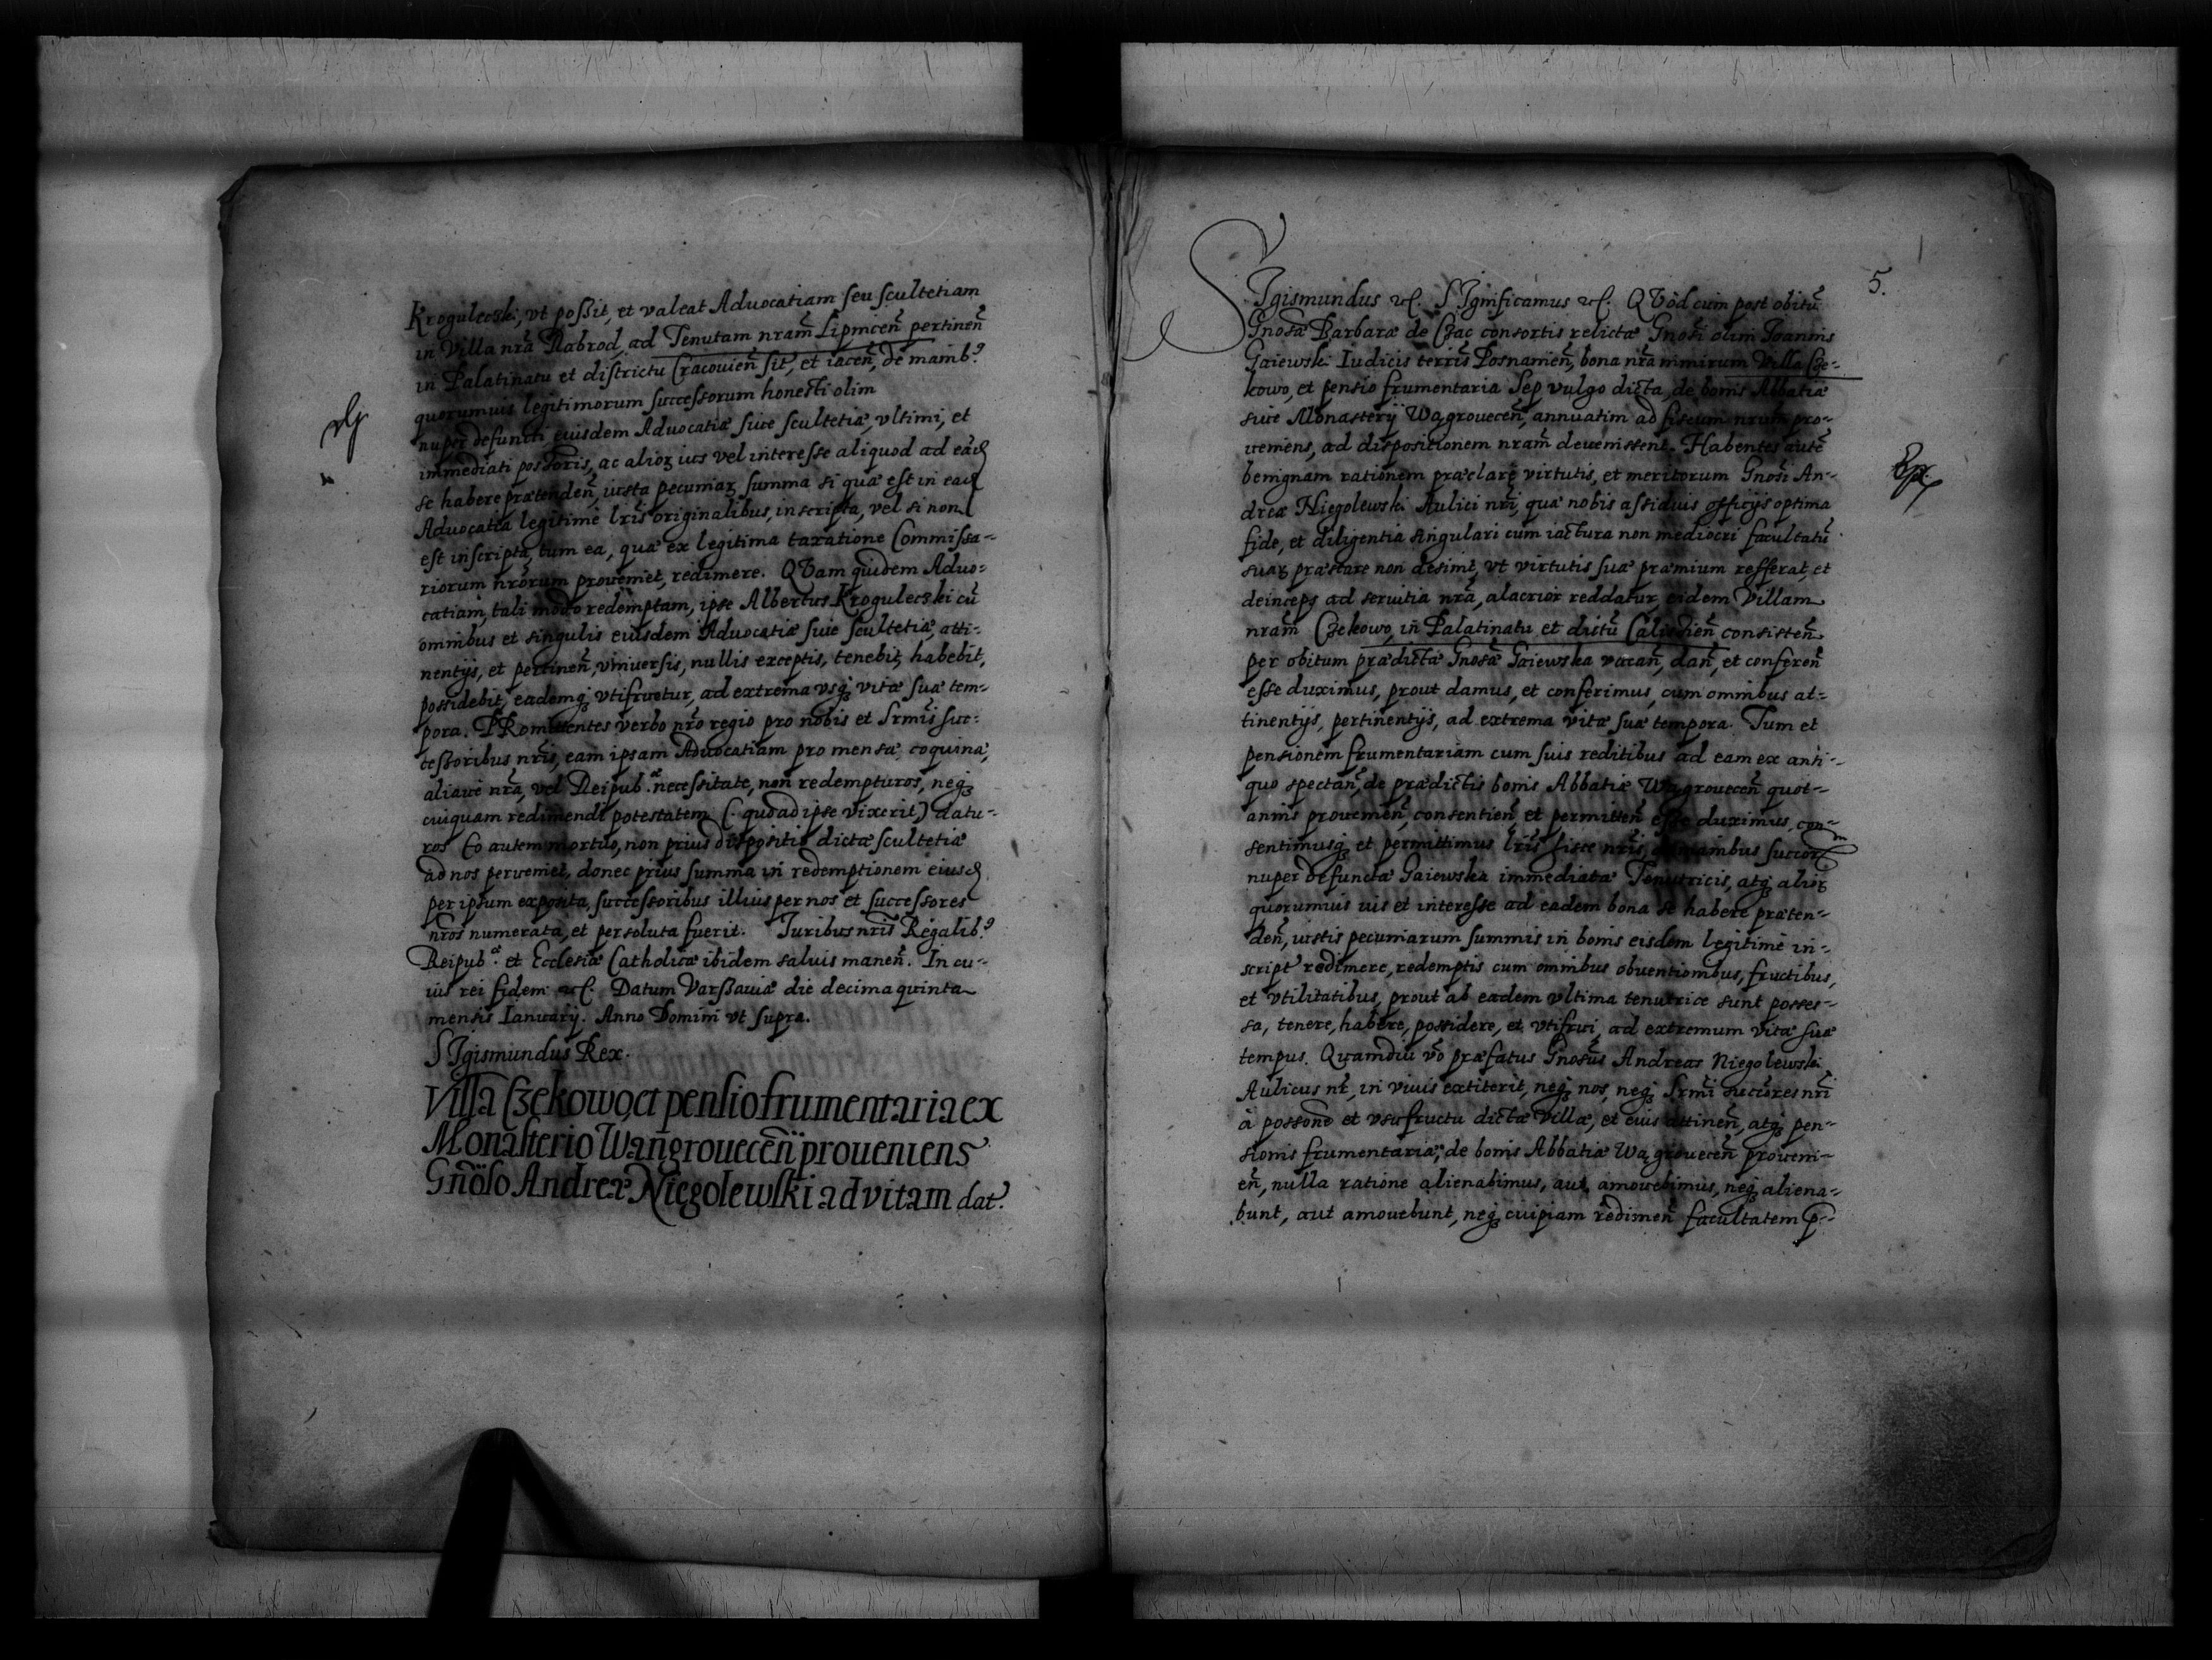 Krogulecski, vt possit, et valeat Aduocatiam seu scultetiam
in Villa nrã Nabrod, ad Tenutam nram̃ Lipnicen̄ pertinen̄
in Palatinatu et districtu Cracouien̄ sit, et iacen̄, de manib9
quorumuis legitimorum successorum honesti olim
nuper defuncti eiusdem Aduocatiæ siue scultetiæ, vltimi, et
immediati possoris, ac alioꝝ ius vel interesse aliquod ad eãd
se habere prætenden̄, iusta pecuniaꝝ summa si quæ est in ead
Aduocatia legitime lris̃ originalibus, inscripta, vel si non
est inscripta, tum ea, quæ ex legitima taxatione Commissa-
riorum nrõrum proueniet, redimere. QVam quidem Aduo-
catiam, tali modo redemptam, ipse Albertus Krogulecski cũ
omnibus et singulis eiusdem Aduocatiæ siue scultetiæ, atti-
nentijs, et pertinen̄, vniuersis, nullis exceptis, tenebit, habebit,
possidebit, eademq; vtifruetur, ad extrema vsq; vitæ suæ tem-
pora. PRomittentes verbo nrõ regio pro nobis et Srmis̃ suc-
cessoribus nris̃, eam ipsam Aduocatiam pro mensæ, coquinæ,
aliaue nrã, vel Reipub.æ necessitate, non redempturos, neq;
cuiquam redimendi potestatem (. quoad ipse vixerit,) datu-
ros Eo autem mortuo, non prius dispositio dictæ scultetiæ
ad nos perueniet, donec prius summa in redemptionem eiusd
per ipsum exposita, successoribus illius per nos et successores
nros̃ numerata, et persoluta fuerit. Iuribus nris̃ Regalib9
Reipub.æ et Ecclesiæ Catholicæ ibidem saluis manen̄. In cu-
ius rei fidem ꝛc. Datum Varssauiæ die decima quinta
mensis Ianuarij. Anno Domini vt supra.
SIgismundus Rex.
Villa Czekowo, et pensio frumentaria ex
Monasterio Wangrouecen̄ proueniens
Gnõso Andreæ Niegolewski ad vitam dat.
5.
SIgismundus ꝛc. SIgnificamus ꝛc. QVod cum post obitũ
Gnosæ̃ Barbaræ de Czac consortis relictæ Gnosĩ olim Ioannis
Gaiewski Iudicis terris̃ Posnanien̄, bona nrã nimirum Villa Cze-
kowo, et pensio frumentaria Sep vulgo dicta, de bonis Abbatiæ
siue Monasterij Wagrouecen̄, annuatim ad fiscum nrum̃ pro-
ueniens, ad dispositionem nram̃ deuenissent. Habentes autẽ
benignam rationem præclaræ virtutis, et meritorum Gnosĩ An-
dreæ Niegolewski Aulici nrĩ, quæ nobis assiduis officijs optima
fide, et diligentia singulari cum iactura non mediocri facultatũ
suaꝝ præstare non desinit, vt virtutis suæ præmium refferat, et
deinceps ad seruitia nrã, alacrior reddatur, eidem Villam
nram̃ Czekowo, in Palatinatu et dictũ Calissien̄ consisten̄
per obitum prædictæ Gnosæ̃ Gaiewska vacan̄, dan̄, et conferen̄
esse duximus, prout damus, et conferimus, cum omnibus at-
tinentijs, pertinentijs, ad extrema vitæ suæ tempora. Tum et
pensionem frumentariam cum suis reditibus ad eam ex anti-
quo spectan̄, de prædictis bonis Abbatiæ Wagrouecen̄ quot-
annis prouenien̄, consentien̄, et permitten̄ esse duximus, con-
sentimusq; et permittimus lris̃ hisce nris̃, de manibus succor̃
nuper defunctæ Gaiewska immediatæ Tenutricis, atq; alioꝝ
quorumuis ius et interesse ad eadem bona se habere præten-
den̄, iustis pecuniarum summis in bonis eisdem legitimè in-
script̃ redimere, redemptis cum omnibus obuentionibus, fructibus,
et vtilitatibus, prout ab eadem vltima tenutrice sunt posses-
sa, tenere, habere, possidere, et vtifrui, ad extremum vitæ suæ
tempus. Quamdiu võ præfatus Gnosus̃ Andreas Niegolewski
Aulicus nr̃, in viuis extiterit, neq; nos, neq; Srmĩ succores̃ nrĩ
à possone̅ et vsufructu dictæ Villæ, et eius attinen̄, atq; pen-
sionis frumentariæ, de bonis Abbatiæ Wagrouecen̄ proueni-
en̄, nulla ratione alienabimus, aut amouebimus, neq; aliena-
bunt, aut amouebunt, neq; cuipiam redimen̄ facultatem p-